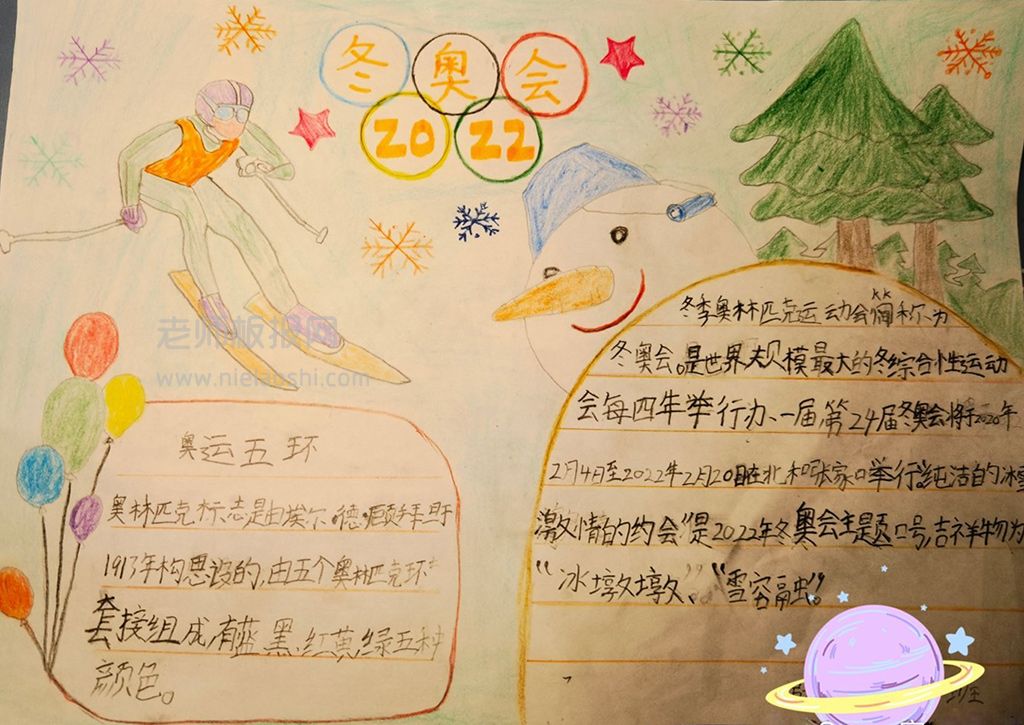 冬奥会
2022
老师板报网
www.nielabshi.com
奥运五环
奥林匹克标志是由埃尔·德·顾拜旦于
1913年构思设的,由五个奥林匹克环
套接组成,有蓝、黑、红、黄、绿五种
颜色。
冬季奥林匹克运动会简称为
冬奥会。是世界规模最大的冬综合性运动
会每四年举行办、一届第24届冬奥会将于2020年
2月4日至2022年2月20日在北和张家口举行"纯洁的冰雪
激情的约会"是2022年冬奥会主题口号,吉祥物为
“冰墩墩”、“雪容融”。
班